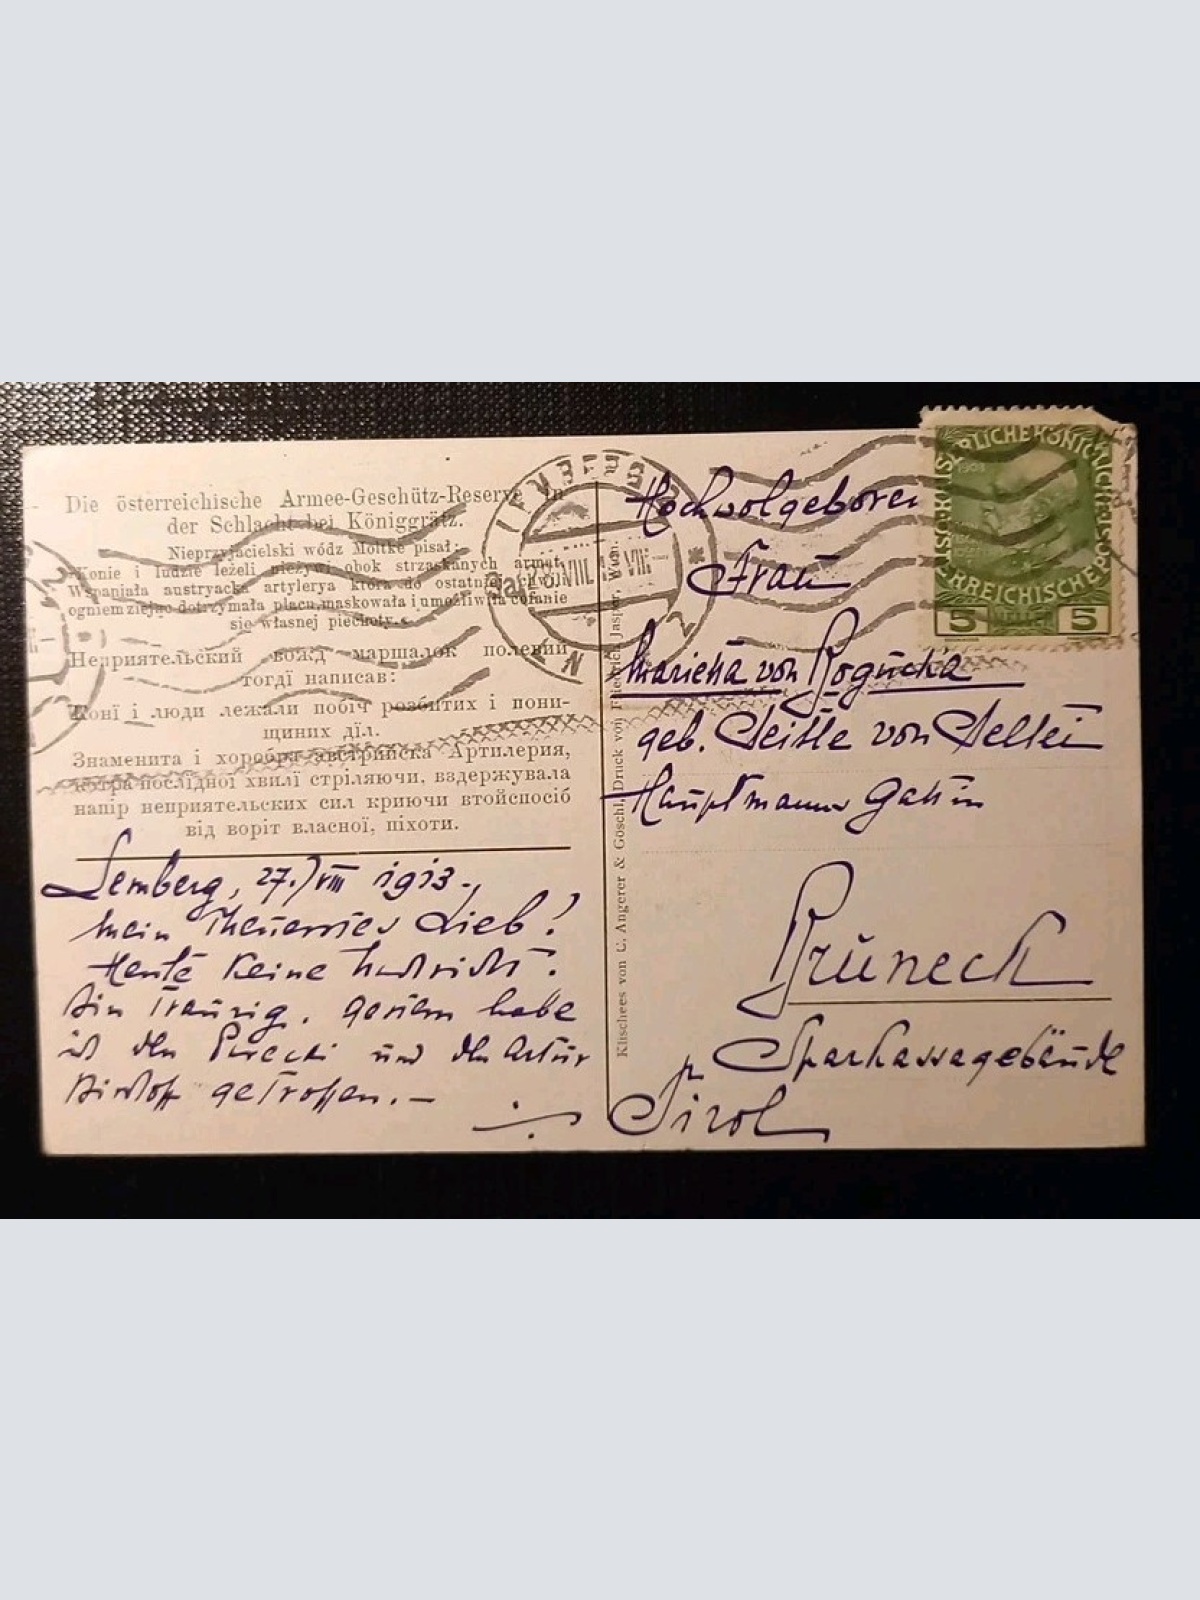 Die österreichische Armee-Geschütz-Reserve in
der Schlacht bei Königgrätz.
Nieprzyjacielski wódz Moltke pisał:
"Konie i ludzie leżeli nieżywi obok strzaskanych armat.
Wspaniała austryacka artylerya która do ostatniej chwili
ogniem ziejąc dotrzymała placu, maskowała i umożliwiła cofanie
się własnej piechoty.«
Неприятельский вожд маршалок полевий
тогдї написав:
Конї і люди лежали побіч розбитих і пони-
щиних дїл.
Знаменита і хоробра австрийска Артилерия,
котра послїдної хвилї стріляючи, вздержувала
напір неприятельских сил криючи втойспосіб
від воріт власної, піхоти.
Lemberg, 27./VIII 1913.
Mein Theuerstes Lieb!
Heute keine Nachricht.
Bin traurig. Gestern habe
ich den und den Artur
getroffen.—
Klischees von C. Angerer & Göschl, Druck von Friedrich Jasper, Wien.
LEMBERG
LWÓW
2
Hochwolgeboren
Frau
Marietta von Rogucka
geb. von
Hauptmanns Gattin
Bruneck
Sparkassagebäude
Tirol
KAISERLICHE KÖNIGLICHE ÖSTERREICHISCHE POST
1908
5 HELLER 5